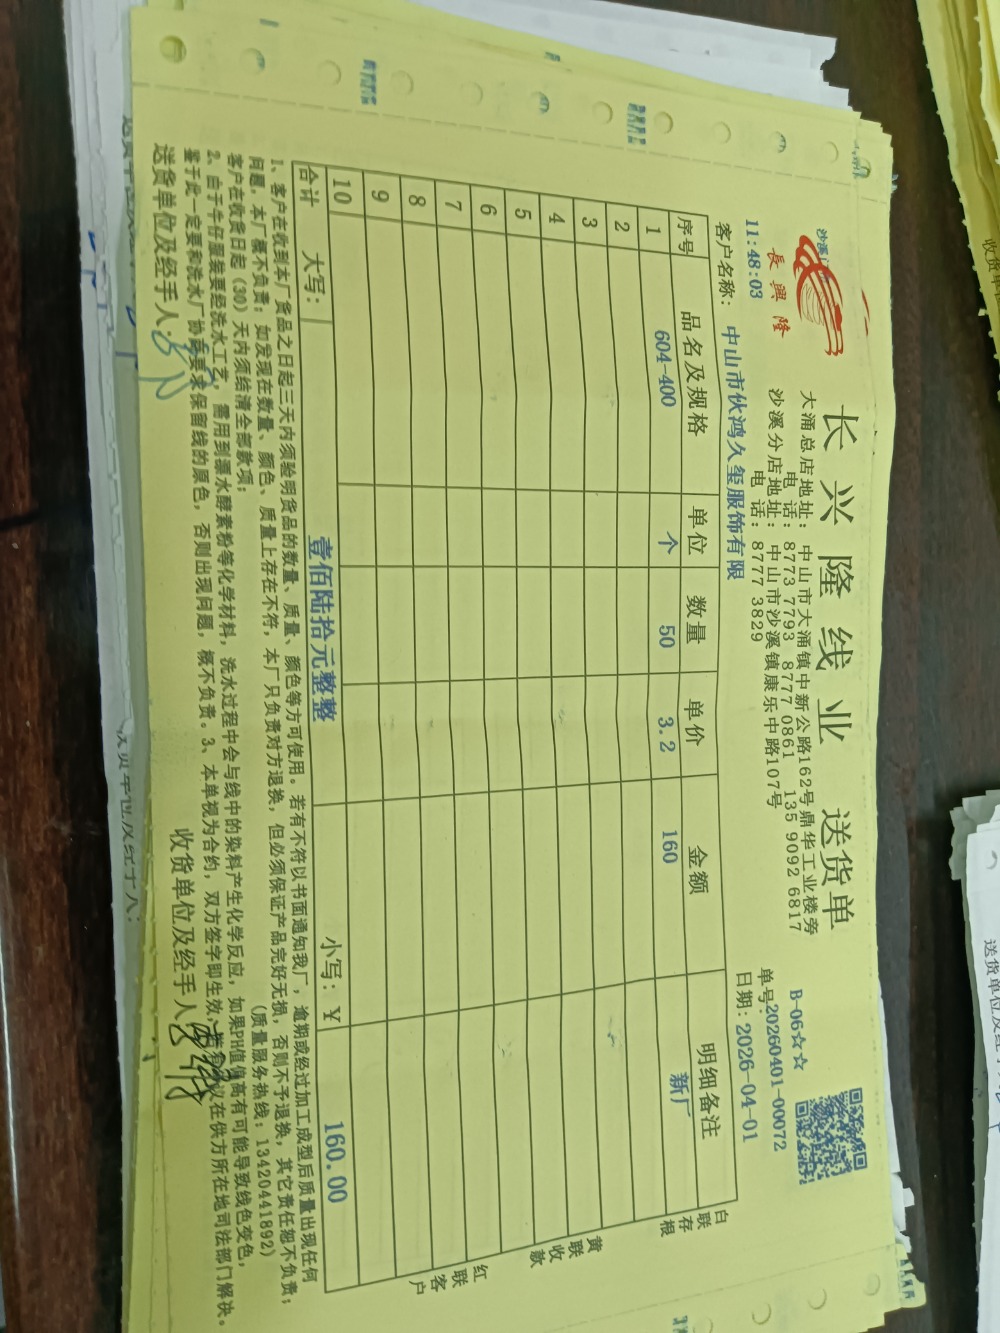 長興隆
沙溪
11:48:03
长兴隆线业 送货单
大涌总店地址: 中山市大涌镇中新公路162号鼎华工业楼旁
电 话: 8773 7793 8777 0861 135 9092 6817
沙溪分店地址: 中山市沙溪镇康乐中路107号
电 话: 8777 3829
B-06☆☆
单号20260401-00072
日期: 2026-04-01
客户名称: 中山市伙鸿久玺服饰有限
序号 品名及规格 单位 数量 单价 金额 明细备注
1 604-400 个 50 3.2 160 新厂
2
3
4
5
6
7
8
9
10
合计 大写: 壹佰陆拾元整整 小写: ¥ 160.00
白联存根
黄联收款
红联客户
1、客户在收到本厂货品之日起三天内须验明货品的数量、质量、颜色等方可使用。若有不符以书面通知我厂, 逾期或经过加工成型后质量出现任何
问题, 本厂概不负责; 如发现在数量、颜色、质量上存在不符, 本厂只负责对方退换, 但必须保证产品完好无损, 否则不予退换, 其它责任恕不负责;
客户在收货日起 (30) 天内须给清全部款项; (质量服务热线: 13420441892)
2、由于牛仔服装要经洗水工艺, 需用到漂水酵素粉等化学材料, 洗水过程中会与线中的染料产生化学反应, 如果PH值偏高有可能导致线色变色,
鉴于此一定要和洗水厂协商要求保留线的原色, 否则出现问题, 概不负责。3、本单视为合约, 双方签字即生效, 议在供方所在地司法部门解决。
送货单位及经手人: 收货单位及经手人